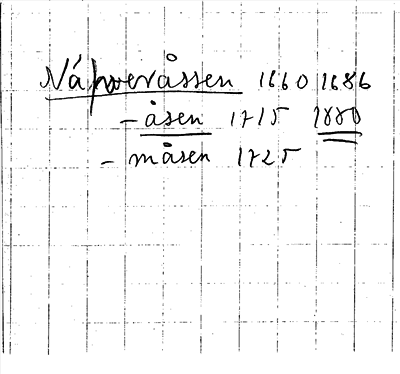 Nápveråssen 1660 1686
- åsen 1715 1880
- måsen 1725